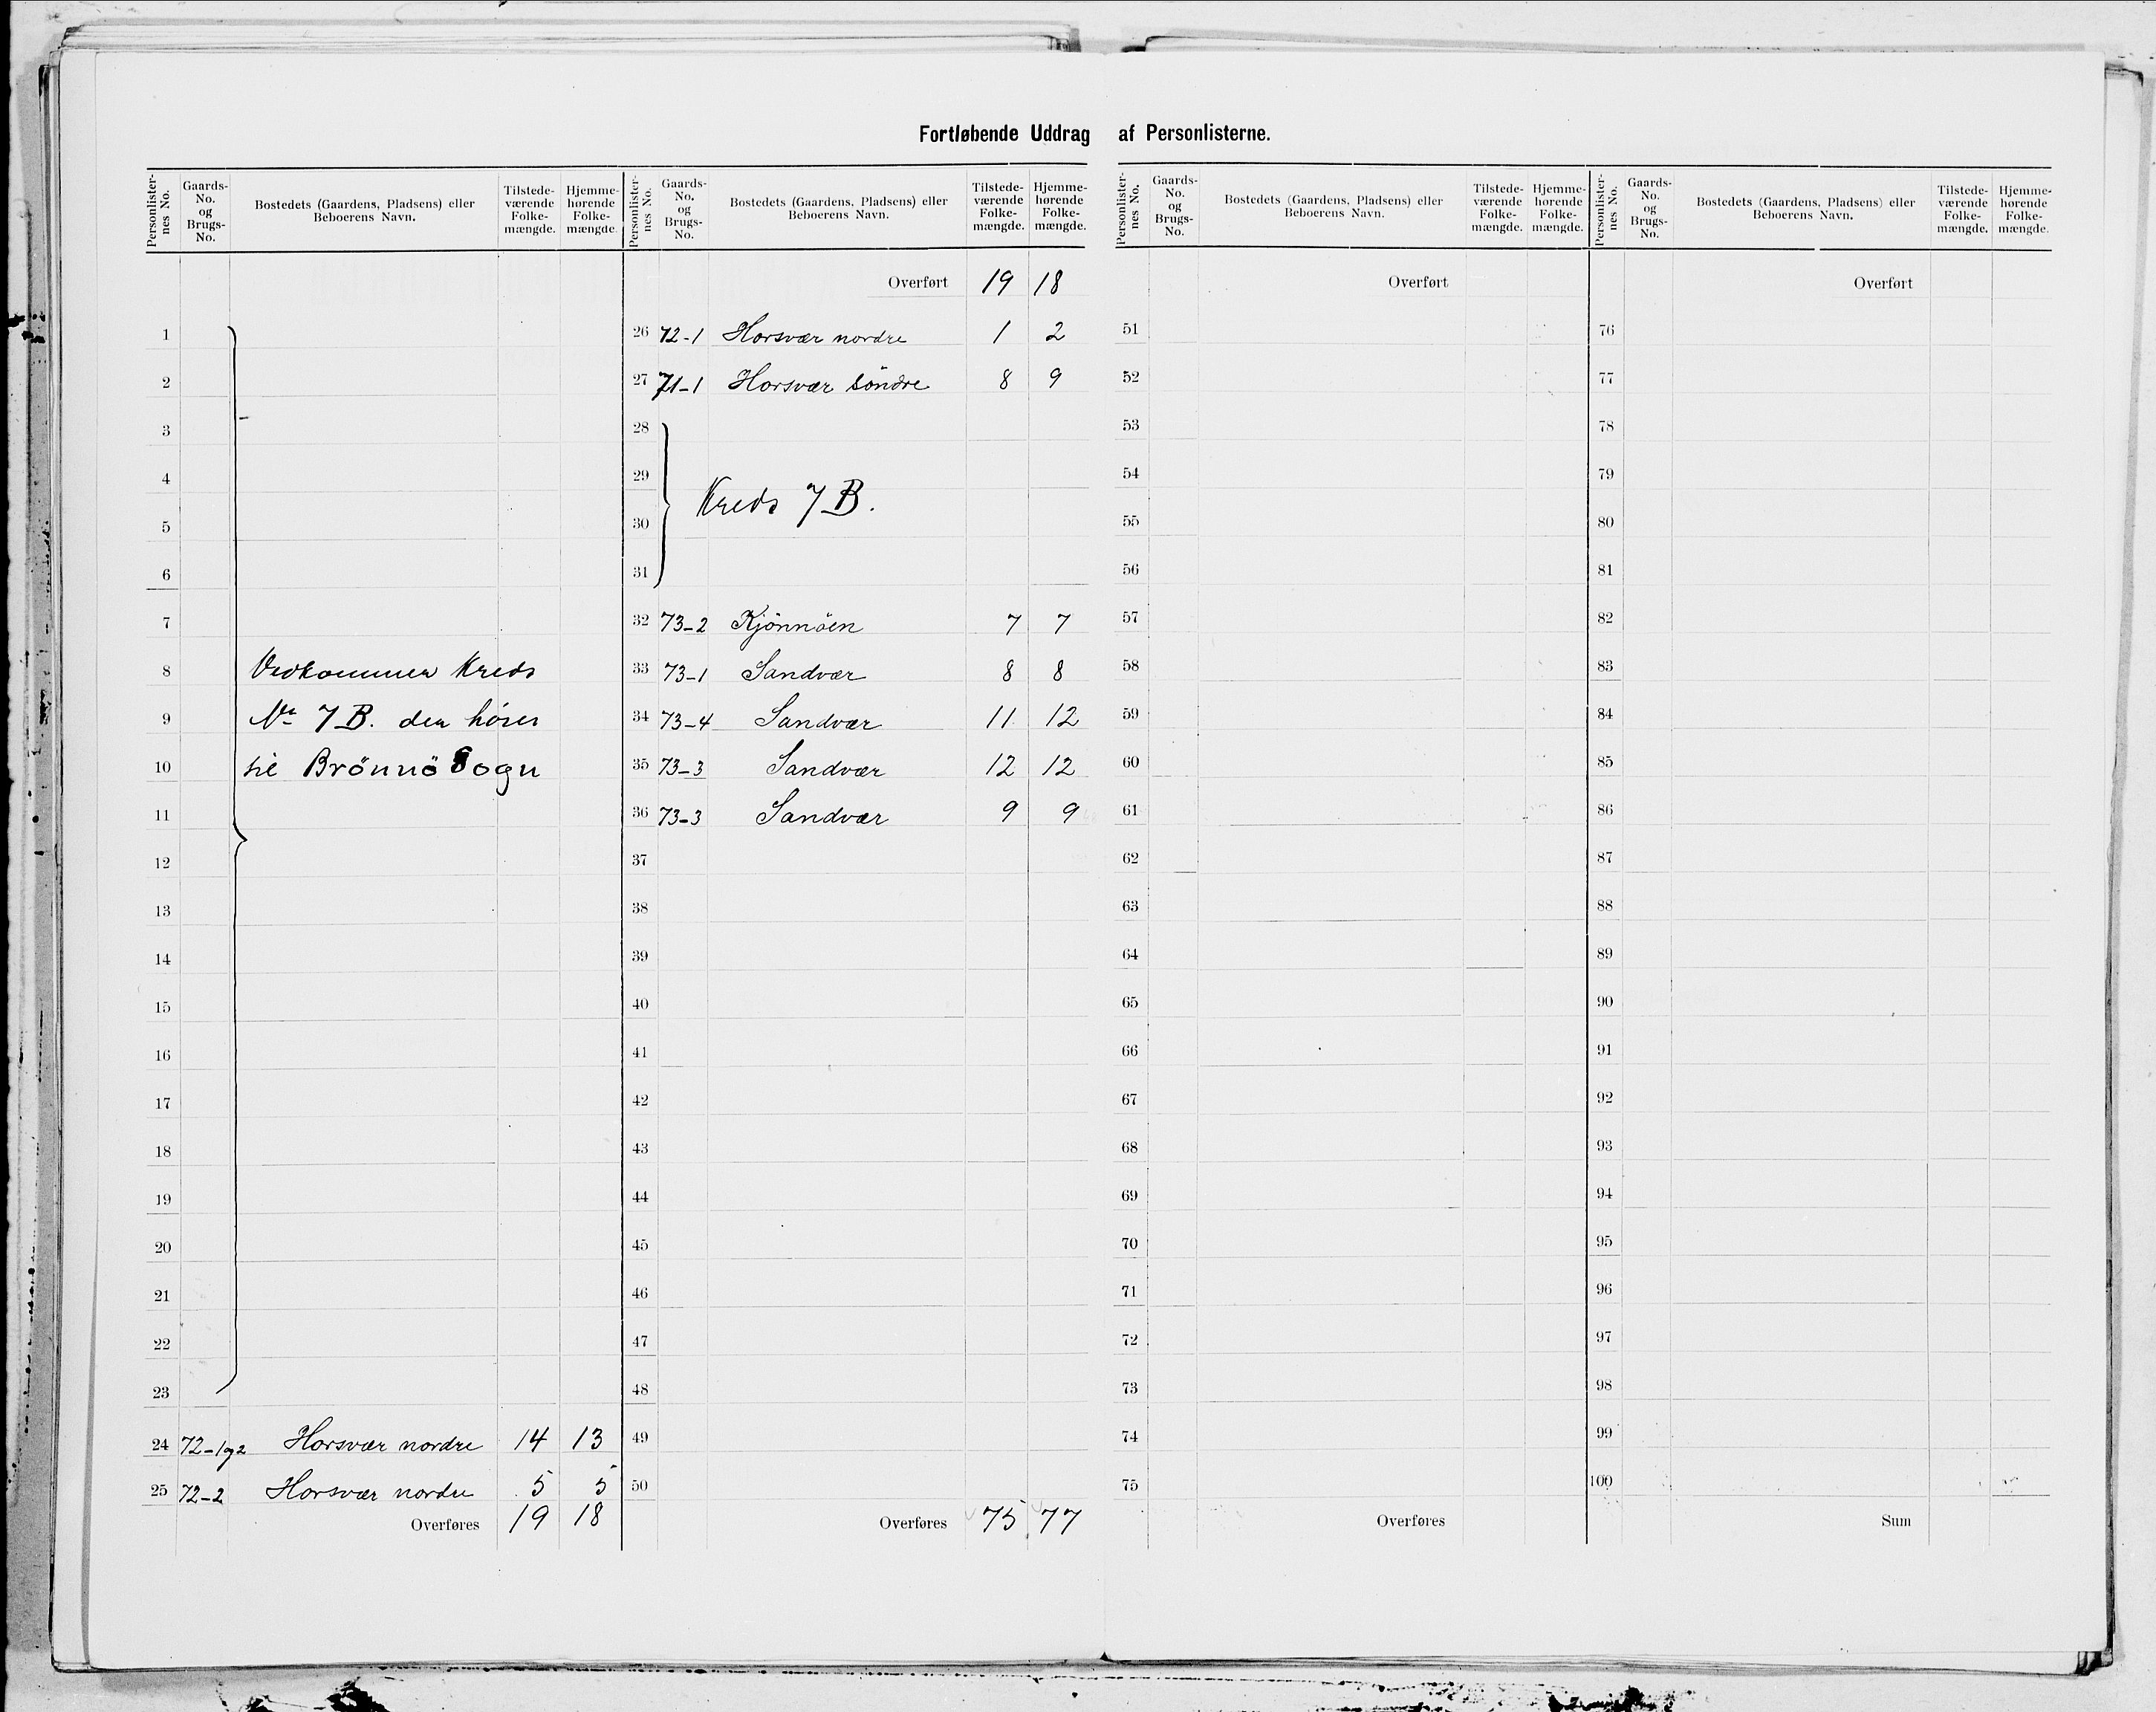 Fortløbende Uddrag af Personlisterne.
Personlister-nes No. | Gaards-No. og Brugs-No. | Bostedets (Gaardens, Pladsens) eller Beboerens Navn. | Tilstede-værende Folke-mængde. | Hjemme-hørende Folke-mængde.
1
2
3
4
5
6
7
8 Vedkommer Kreds
9 No 7 B. der hører
10 til Brönnö Sogn
11
12
13
14
15
16
17
18
19
20
21
22
23
24 72-1og2 Horsvær nordre 14 13
25 72-2 Horsvær nordre 5 5
Overføres 19 18
Personlister-nes No. | Gaards-No. og Brugs-No. | Bostedets (Gaardens, Pladsens) eller Beboerens Navn. | Tilstede-værende Folke-mængde. | Hjemme-hørende Folke-mængde.
Overført 19 18
26 72-1 Horsvær nordre 1 2
27 71-1 Horsvær söndre 8 9
28
29
Kreds 7 B.
30
31
32 73-2 Kjönnöen 7 7
33 73-1 Sandvær 8 8
34 73-4 Sandvær 11 12
35 73-3 Sandvær 12 12
36 73-3 Sandvær 9 9
37
38
39
40
41
42
43
44
45
46
47
48
49
50
Overføres 75 77
Personlister-nes No. | Gaards-No. og Brugs-No. | Bostedets (Gaardens, Pladsens) eller Beboerens Navn. | Tilstede-værende Folke-mængde. | Hjemme-hørende Folke-mængde.
Overført
51
52
53
54
55
56
57
58
59
60
61
62
63
64
65
66
67
68
69
70
71
72
73
74
75
Overføres
Personlister-nes No. | Gaards-No. og Brugs-No. | Bostedets (Gaardens, Pladsens) eller Beboerens Navn. | Tilstede-værende Folke-mængde. | Hjemme-hørende Folke-mængde.
Overført
76
77
78
79
80
81
82
83
84
85
86
87
88
89
90
91
92
93
94
95
96
97
98
99
100
Sum